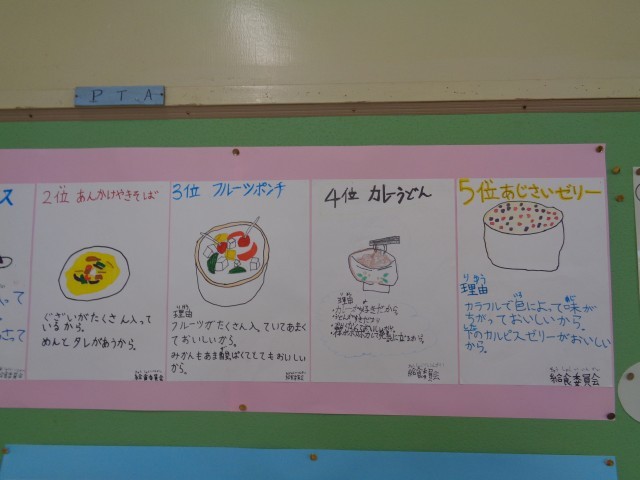 P T A
ス
2位 あんかけやきそば
ぐざいがたくさん入って
いるから。
めんとタレがあうから。
給食委員会
3位 フルーツポンチ
りゆう
理由
フルーツがたくさん入っていてあまく
ておいしいから。
みかんもあま酸っぱくてとてもおいしい
から。
給食委員会
4位 カレーうどん
りゆう
理由
給食委員会
5位 あじさいゼリー
りゆう
理由
カラフルで色によって味が
ちがっておいしいから。
下のカルピスゼリーがおいしい
から。
給食委員会